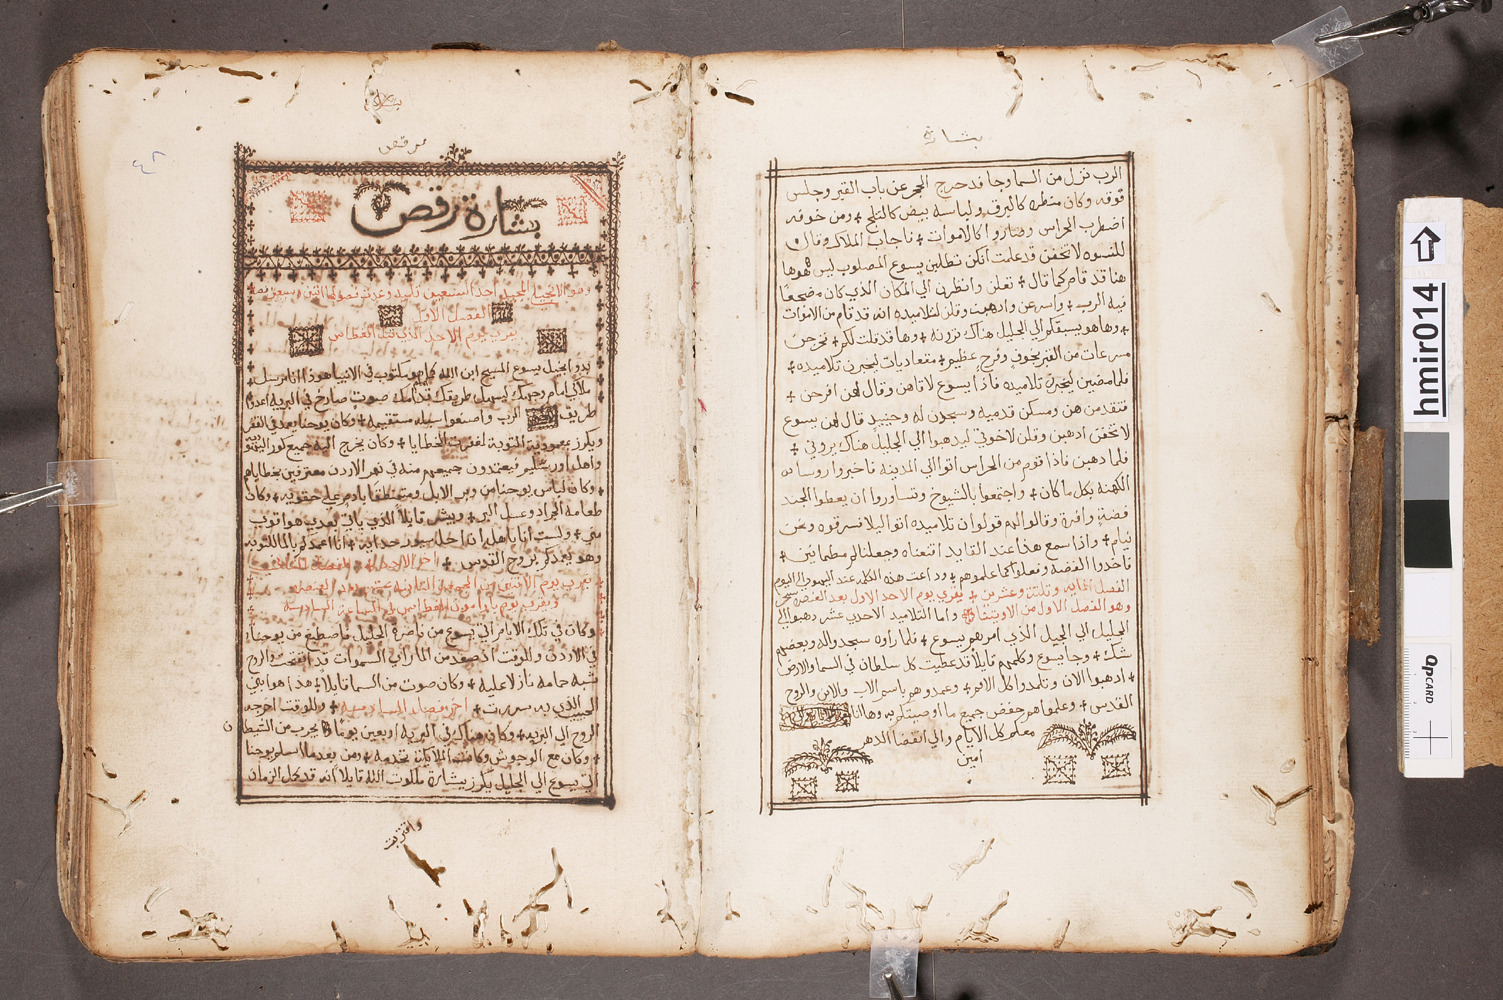 بشارة
الرب نزل من السما وجا فدحرج الحجر عن باب القبر وجلس
فوقه وكان منظره كالبرق ولباسه بيض كالتلج ومن خوفه
اضطرب الحراس وصاروا كالاموات فاجاب الملاك وقال
للنسوه لا تخفن قد علمت انكن تطلبن يسوع المصلوب ليس هوها
هنا قد قام كما قال تعلن وانظرن الي المكان الذي كان مضجعًا
فيه الرب واسرعن وادهبن وقلن لتلاميده انه قد قام من الاموات
وهاهو يسبقكم الي الجليل هناك ترونه وها قد قلت لكم فخرجن
مسرعات من القبر بخوف وفرح عظيم متعاديات ليخبرن تلاميده
فلما مضين ليخبرن تلاميده فاذا يسوع لاقاهن وقال لهن افرحن
فتقدمن هن ومسكن قدميه وسجدن له وحينيد قال لهن يسوع
لا تخفن ادهبن وقلن لاخوتي ليدهبوا الي الجليل هناك يروني
فلما دهبن فاذا قوم من الحراس اتوا الي المدينه فاخبروا روسا
الكهنه بكل ما كان واجتمعوا بالشيوخ وتساوروا ان يعطوا الجند
فضة وافرة وقالوا لهم قولوا ان تلاميده اتوا ليلا فسرقوه ونحن
نيام واذا سمع هذا عند القايد اقنعناه وجعلناكم مطمانين
فاخدوا الفضة وفعلوا كما علموهم وداعت هذه الكلمه عند اليهود الي اليوم
الفصل المايه وتلتة وعشرين يقري يوم الاحد الاول بعد العنصره سحر
وهو الفصل الاول من الاوتينا واما التلاميد الاحدي عشر دهبوا الي
الجليل الي الجبل الذي امرهم يسوع فلما راوه سجدوا له وبعضهم
شك وجا يسوع وكلمهم قايلا قد عطيت كل سلطان في السما والارض
ادهبوا الان وتلمدوا كل الامم وعمدوهم باسم الاب والابن والروح
القدس وعلموهم حفض جميع ما اوصيتكم به وها انا
معكم كل الايام والي انقضا الدهر
امين
مرقص
بشارة مرقص
الفصل الاول
يقرب يوم الاحد الذي قبل الغطاس
بدو انجيل يسوع المسيح ابن الله كما هو مكتوب في الانبيا هوذا انا مرسل
ملاكي امام وجهك ليسهل طريقك قدامك صوت صارخ في البريه اعدوا
طريق الرب واصنعوا سبله مستقيمه وكان يوحنا يعمد في القفر
ويكرز بمعمودية التوبة لغفرت الخطايا وكان يخرج اليه جميع كور اليهود
واهل اورشليم فيعتمدون جميعهم منه في نهر الاردن معترفين بخطاياهم
وكان لباس يوحنا من وبر الابل ومتمنطقا بادم علي حقويه وكان
طعامه الجراد وعسل البر وبشر قايلا الذي ياتي بعدي هو اقوي
مني ولست انا باهل ان احل سيور حداه انا اعمدكم بالما للتوبه
وهو يعمدكم بروح القدس
وكان في تلك الايام اتي يسوع من ناصرة الجليل فاصطبغ من يوحنا
في الاردن وللوقت اد صعد من الما راي السموات قد انفتحت والروح
شبه حمامه نازلا عليه وكان صوت من السما قايلا هدا هو ابني
الحبيب الذي به سررت وللوقت اخرجه
الروح الي البريه وكان هناك في البريه اربعين يومًا يجرب من الشيطان
وكان مع الوحوش وكانت الملايكه تخدمه ومن بعد ما اسلم يوحنا
اتي يسوع الي الجليل يكرز ببشارة ملكوت الله قايلا انه قد كمل الزمان
واقتربت
hmir014
QPcard